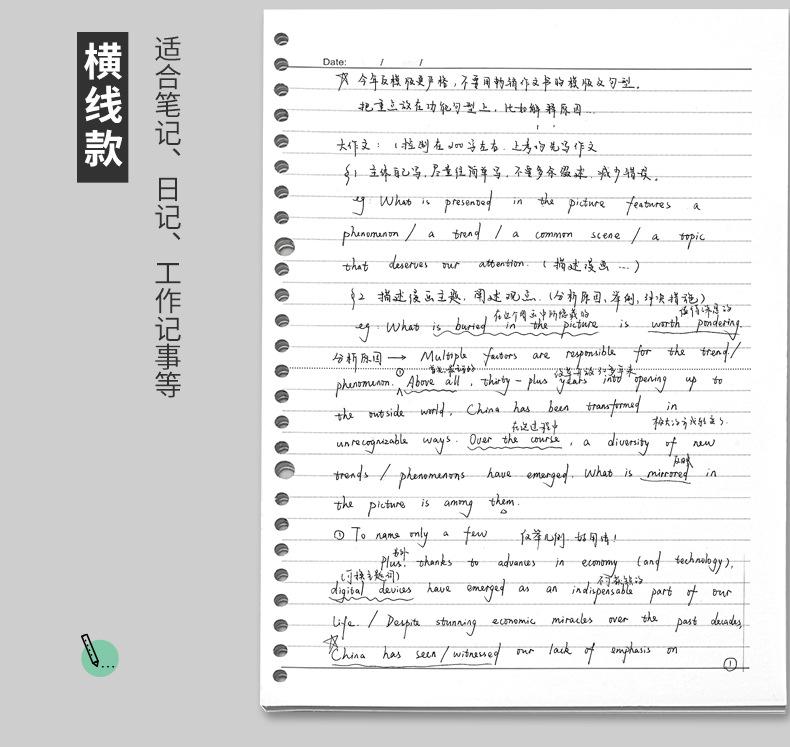 横线款
适合笔记、日记、工作记事等
Date: / /
☆ 今年反模板更严格，不要用畅销作文书的模版及句型。
把重点放在功能句型上，比如解释原因...
大作文：(控制在200字左右。上考场先写作文
§1 主体自己写，尽量往简单写，不要多余缀述，减少错误。
eg What is presented in the picture features a
phenomenon / a trend / a common scene / a topic
that deserves our attention. (描述漫画...)
§2 描述漫画主题，阐述观点.(分析原因,举例,解决措施)
在这个图画中所隐藏的 值得深思的
eg. What is buried in the picture is worth pondering.
分析原因 → Multiple factors are responsible for the trend/
phenomenon. ① Above all, thirty-plus years into opening up to
the outside world, China has been transformed in
在这过程中
unrecognizable ways. Over the course, a diversity of new
反映
trends / phenomenons have emerged. What is mirrored in
the picture is among them.
① To name only a few 仅举几例 好用信!
另外
Plus. thanks to advances in economy (and technology),
(可换主题词) 不可或缺的
digital devices have emerged as an indispensable part of our
life. / Despite stunning economic miracles over the past decades,
☆ China has seen / witnessed our lack of emphasis on
①